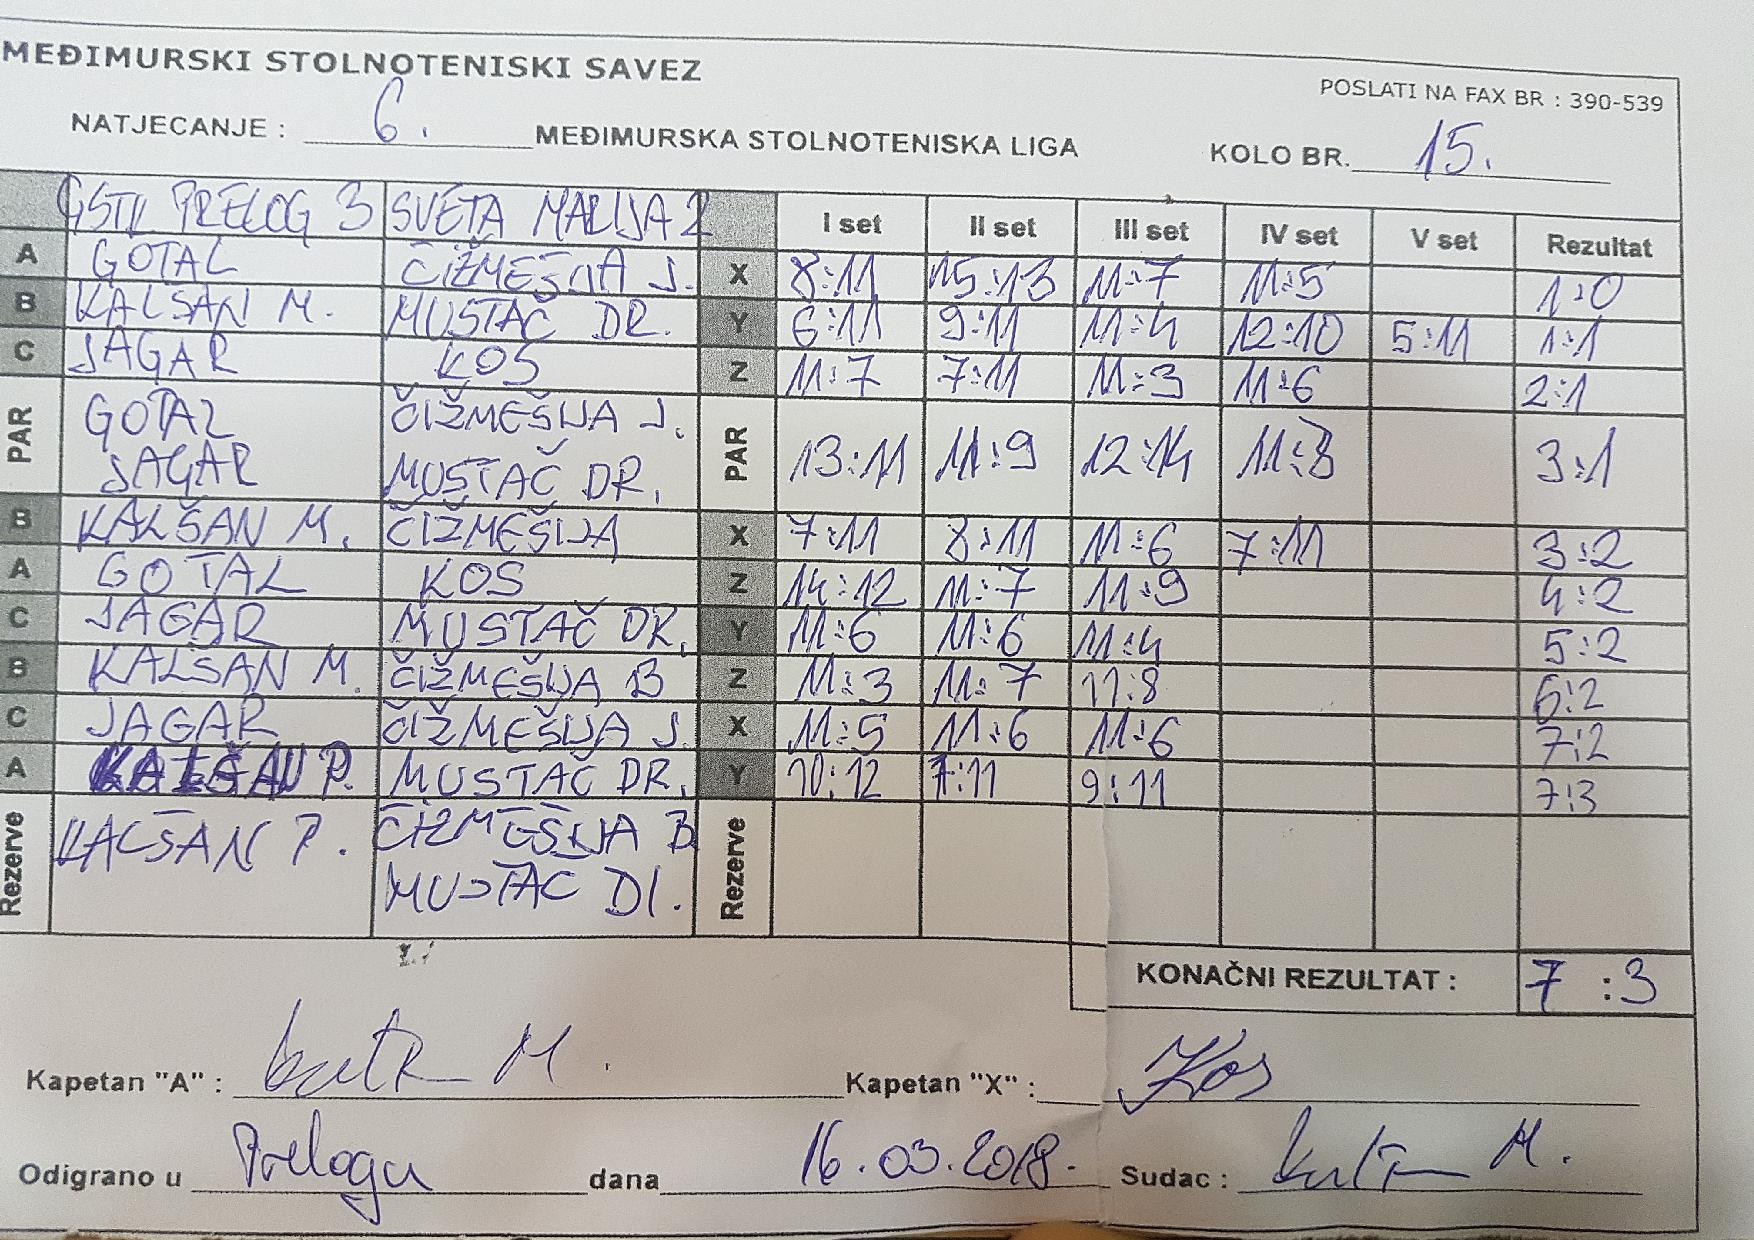 MEĐIMURSKI STOLNOTENISKI SAVEZ
POSLATI NA FAX BR : 390-539
NATJECANJE : 6. MEĐIMURSKA STOLNOTENISKA LIGA KOLO BR. 15.
GSTK PRELOG 3 SVETA MARIJA 2 I set II set III set IV set V set Rezultat
A GOTAL ČIŽMEŠIJA J. X 8:11 15:13 11:7 11:5 1:0
B KALŠAN M. MUSTAČ DR. Y 6:11 9:11 11:4 12:10 5:11 1:1
C JAGAR KOS Z 11:7 7:11 11:3 11:6 2:1
PAR GOTAL ČIŽMEŠIJA J. PAR 13:11 11:9 12:14 11:8 3:1
JAGAR MUSTAČ DR.
B KALŠAN M. ČIŽMEŠIJA X 7:11 8:11 11:6 7:11 3:2
A GOTAL KOS Z 14:12 11:7 11:9 4:2
C JAGAR MUSTAČ DR. Y 11:6 11:6 11:4 5:2
B KALŠAN M. ČIŽMEŠIJA B Z 11:3 11:7 11:8 6:2
C JAGAR ČIŽMEŠIJA J. X 11:5 11:6 11:6 7:2
A KALŠAN P. MUSTAČ DR. Y 10:12 7:11 9:11 7:3
Rezerve KALŠAN P. ČIŽMEŠIJA B Rezerve
MUSTAČ DI.
KONAČNI REZULTAT : 7 :3
Kapetan "A" : M. Kapetan "X" : Kos
Odigrano u Prelogu dana 16.03.2018. Sudac : M.